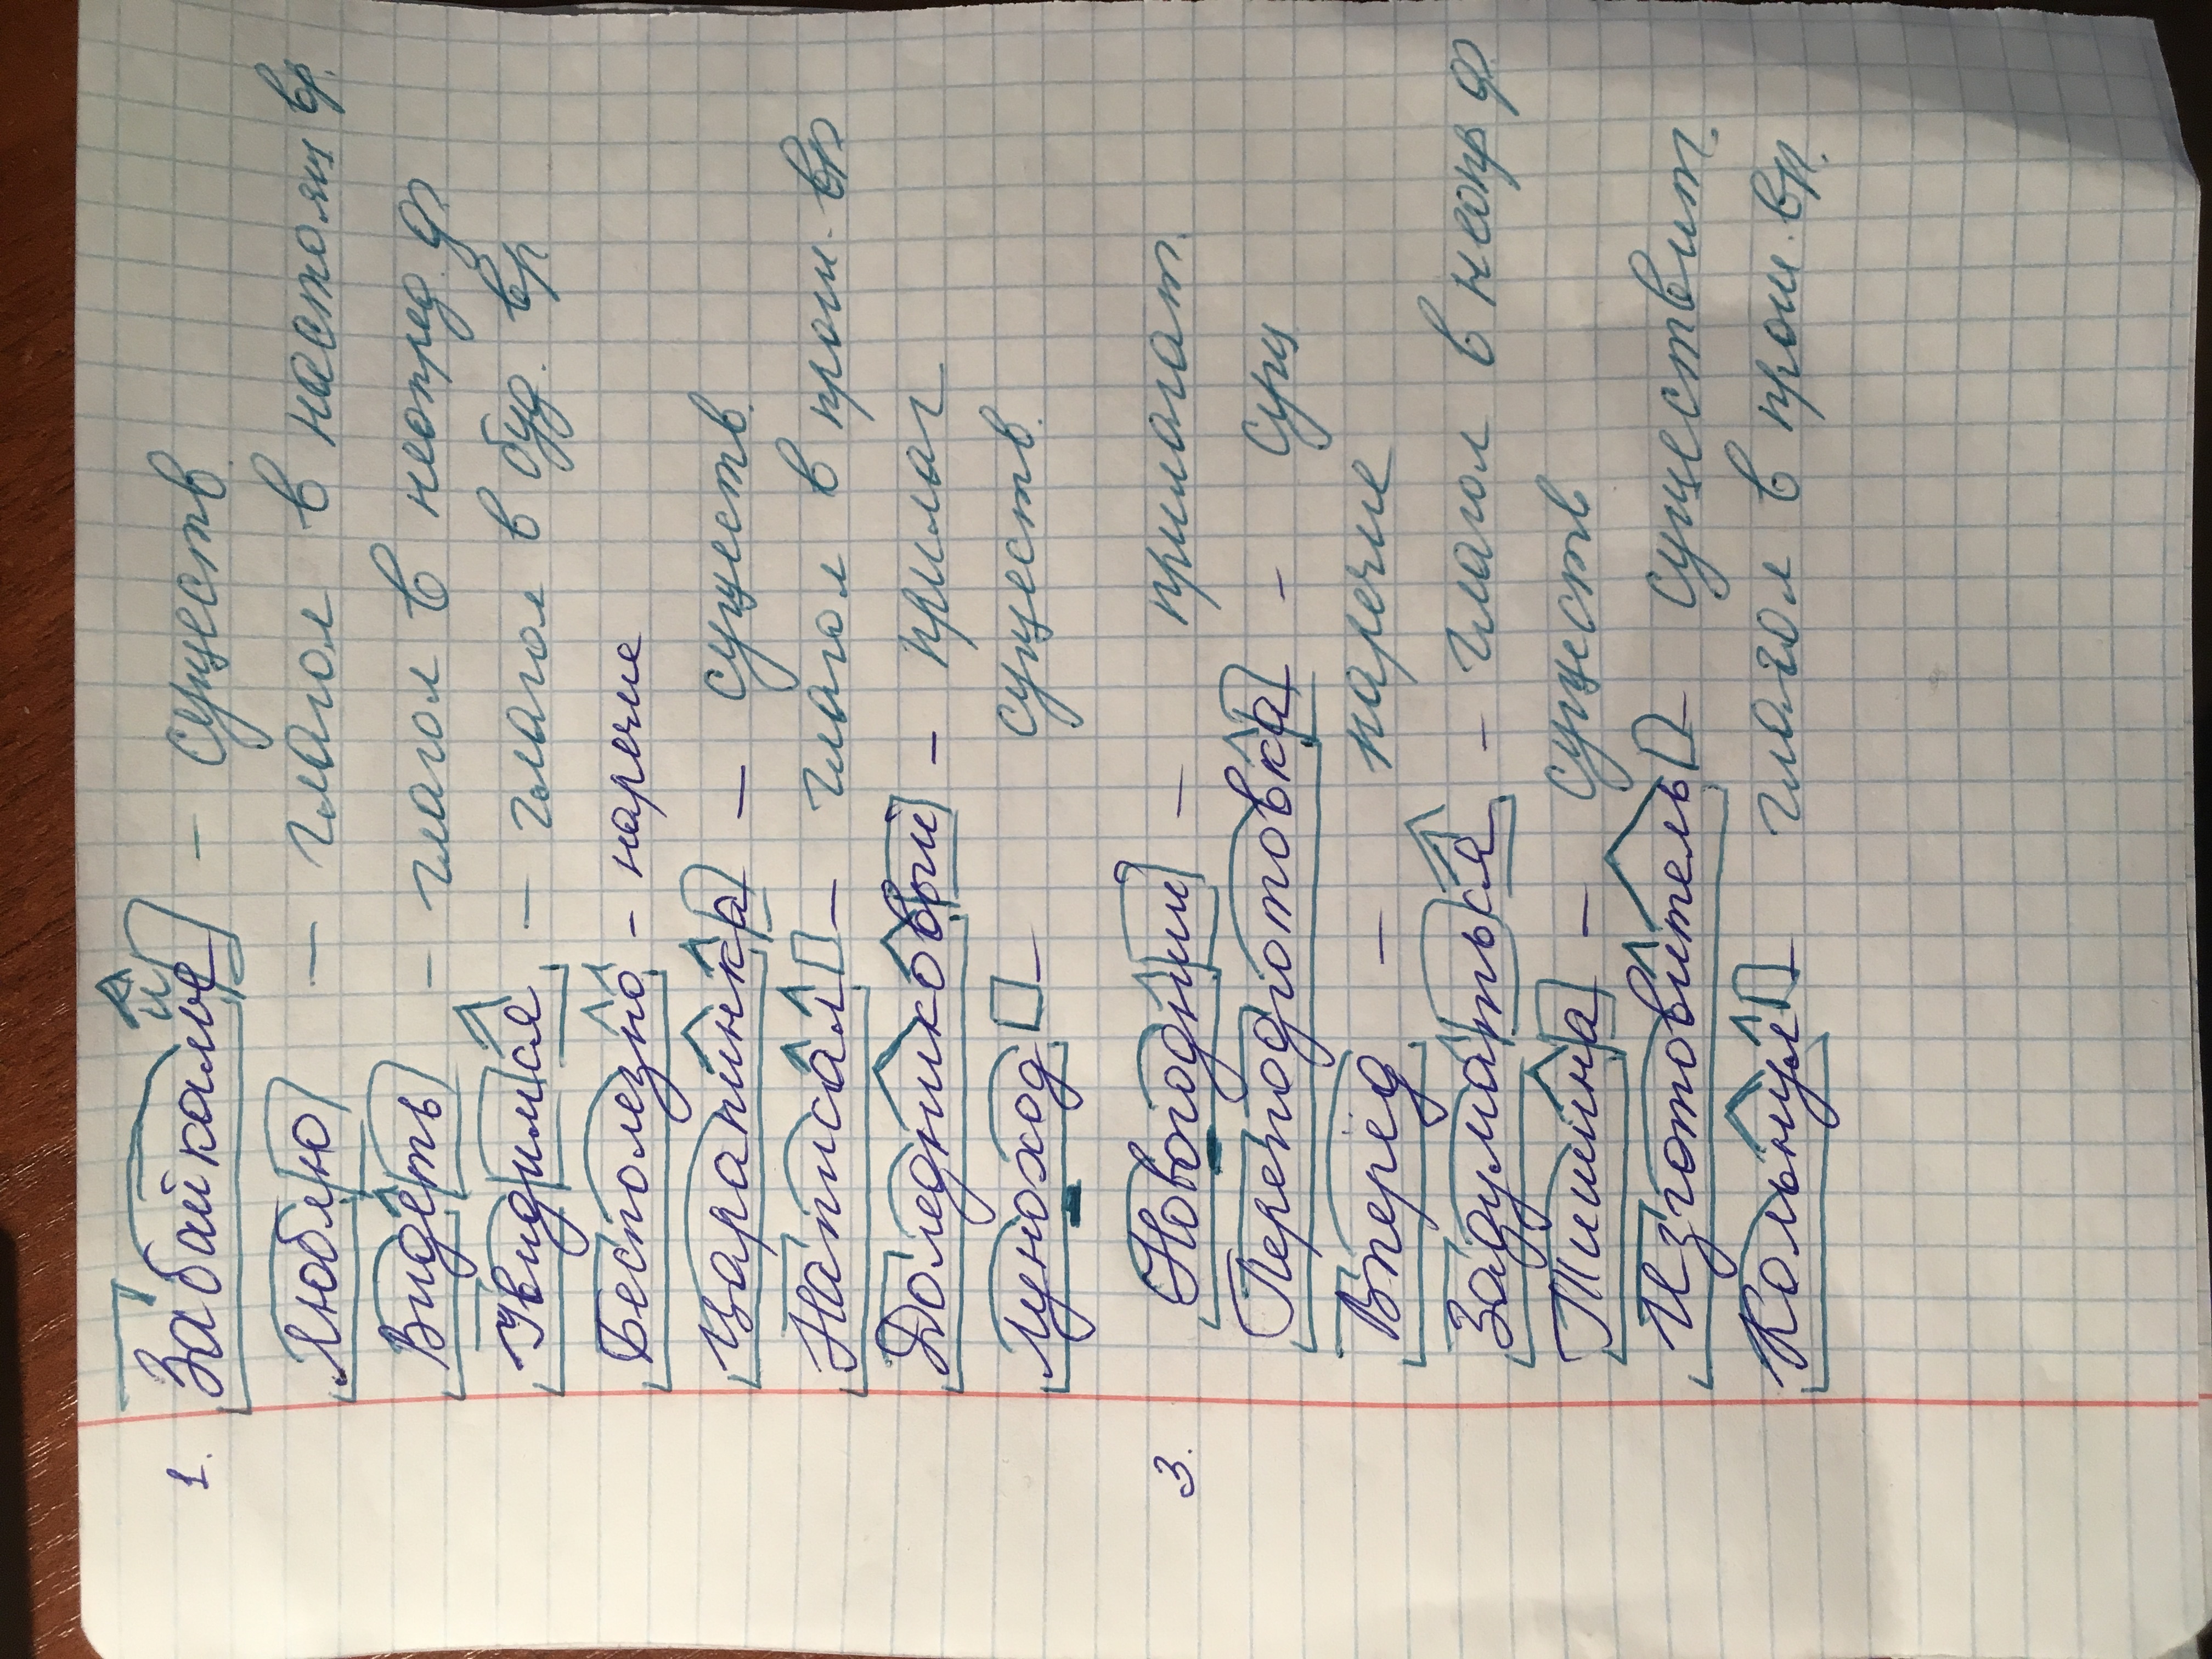 1. Забайкалье - существ.
Люблю - глагол в настоящ вр.
Видеть - глагол в неопред. ф
Увидимся - глагол в буд. вр
Бесполезно - наречие
Царапинка - существ.
Написал - глагол в прош. вр
Доледниковый - прилаг
Луноход - существ.
3. Новогодний - прилагат.
Переподготовка - сущ
Вперёд - наречие
Задуматься - глагол в неопр ф.
Тишина - существ
Изготовитель - существит.
Кольнул - глагол в прош. вр.